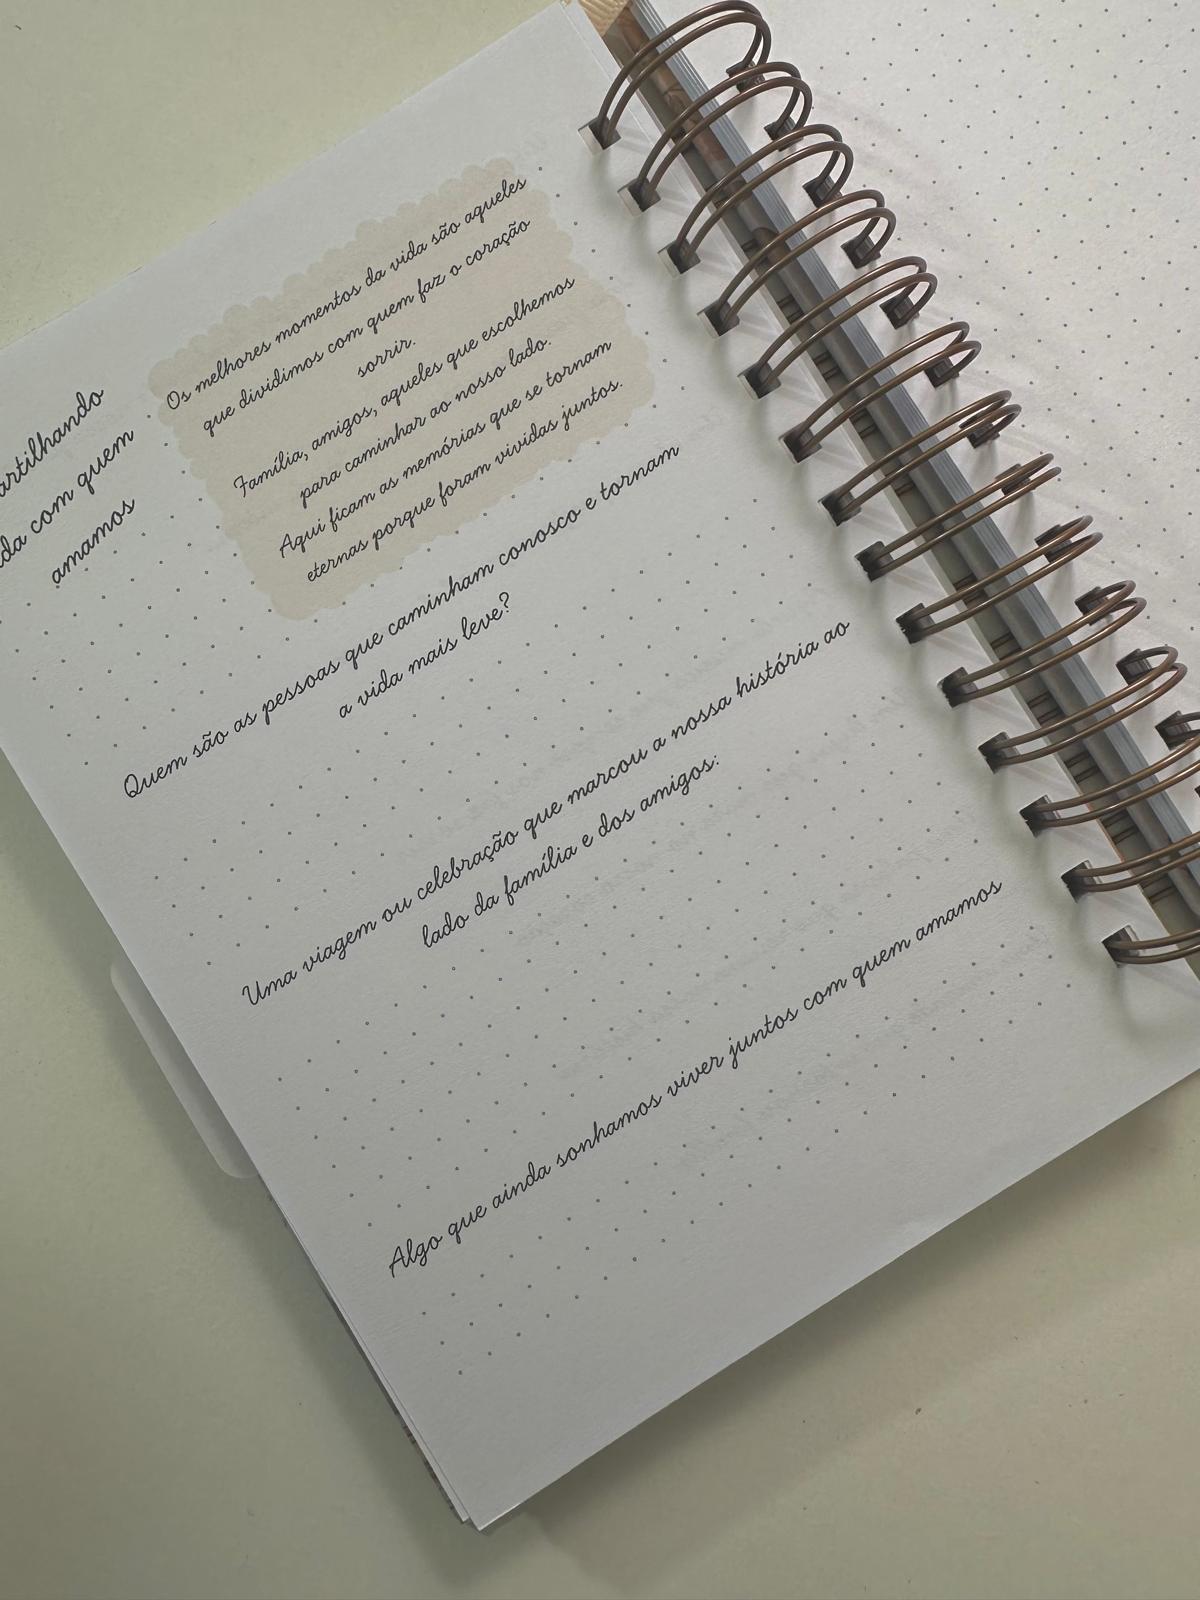 artilhando
da com quem
amamos
Os melhores momentos da vida são aqueles
que dividimos com quem faz o coração
sorrir.
Família, amigos, aqueles que escolhemos
para caminhar ao nosso lado.
Aqui ficam as memórias que se tornam
eternas porque foram vividas juntos.
Quem são as pessoas que caminham conosco e tornam
a vida mais leve?
Uma viagem ou celebração que marcou a nossa história ao
lado da família e dos amigos:
Algo que ainda sonhamos viver juntos com quem amamos